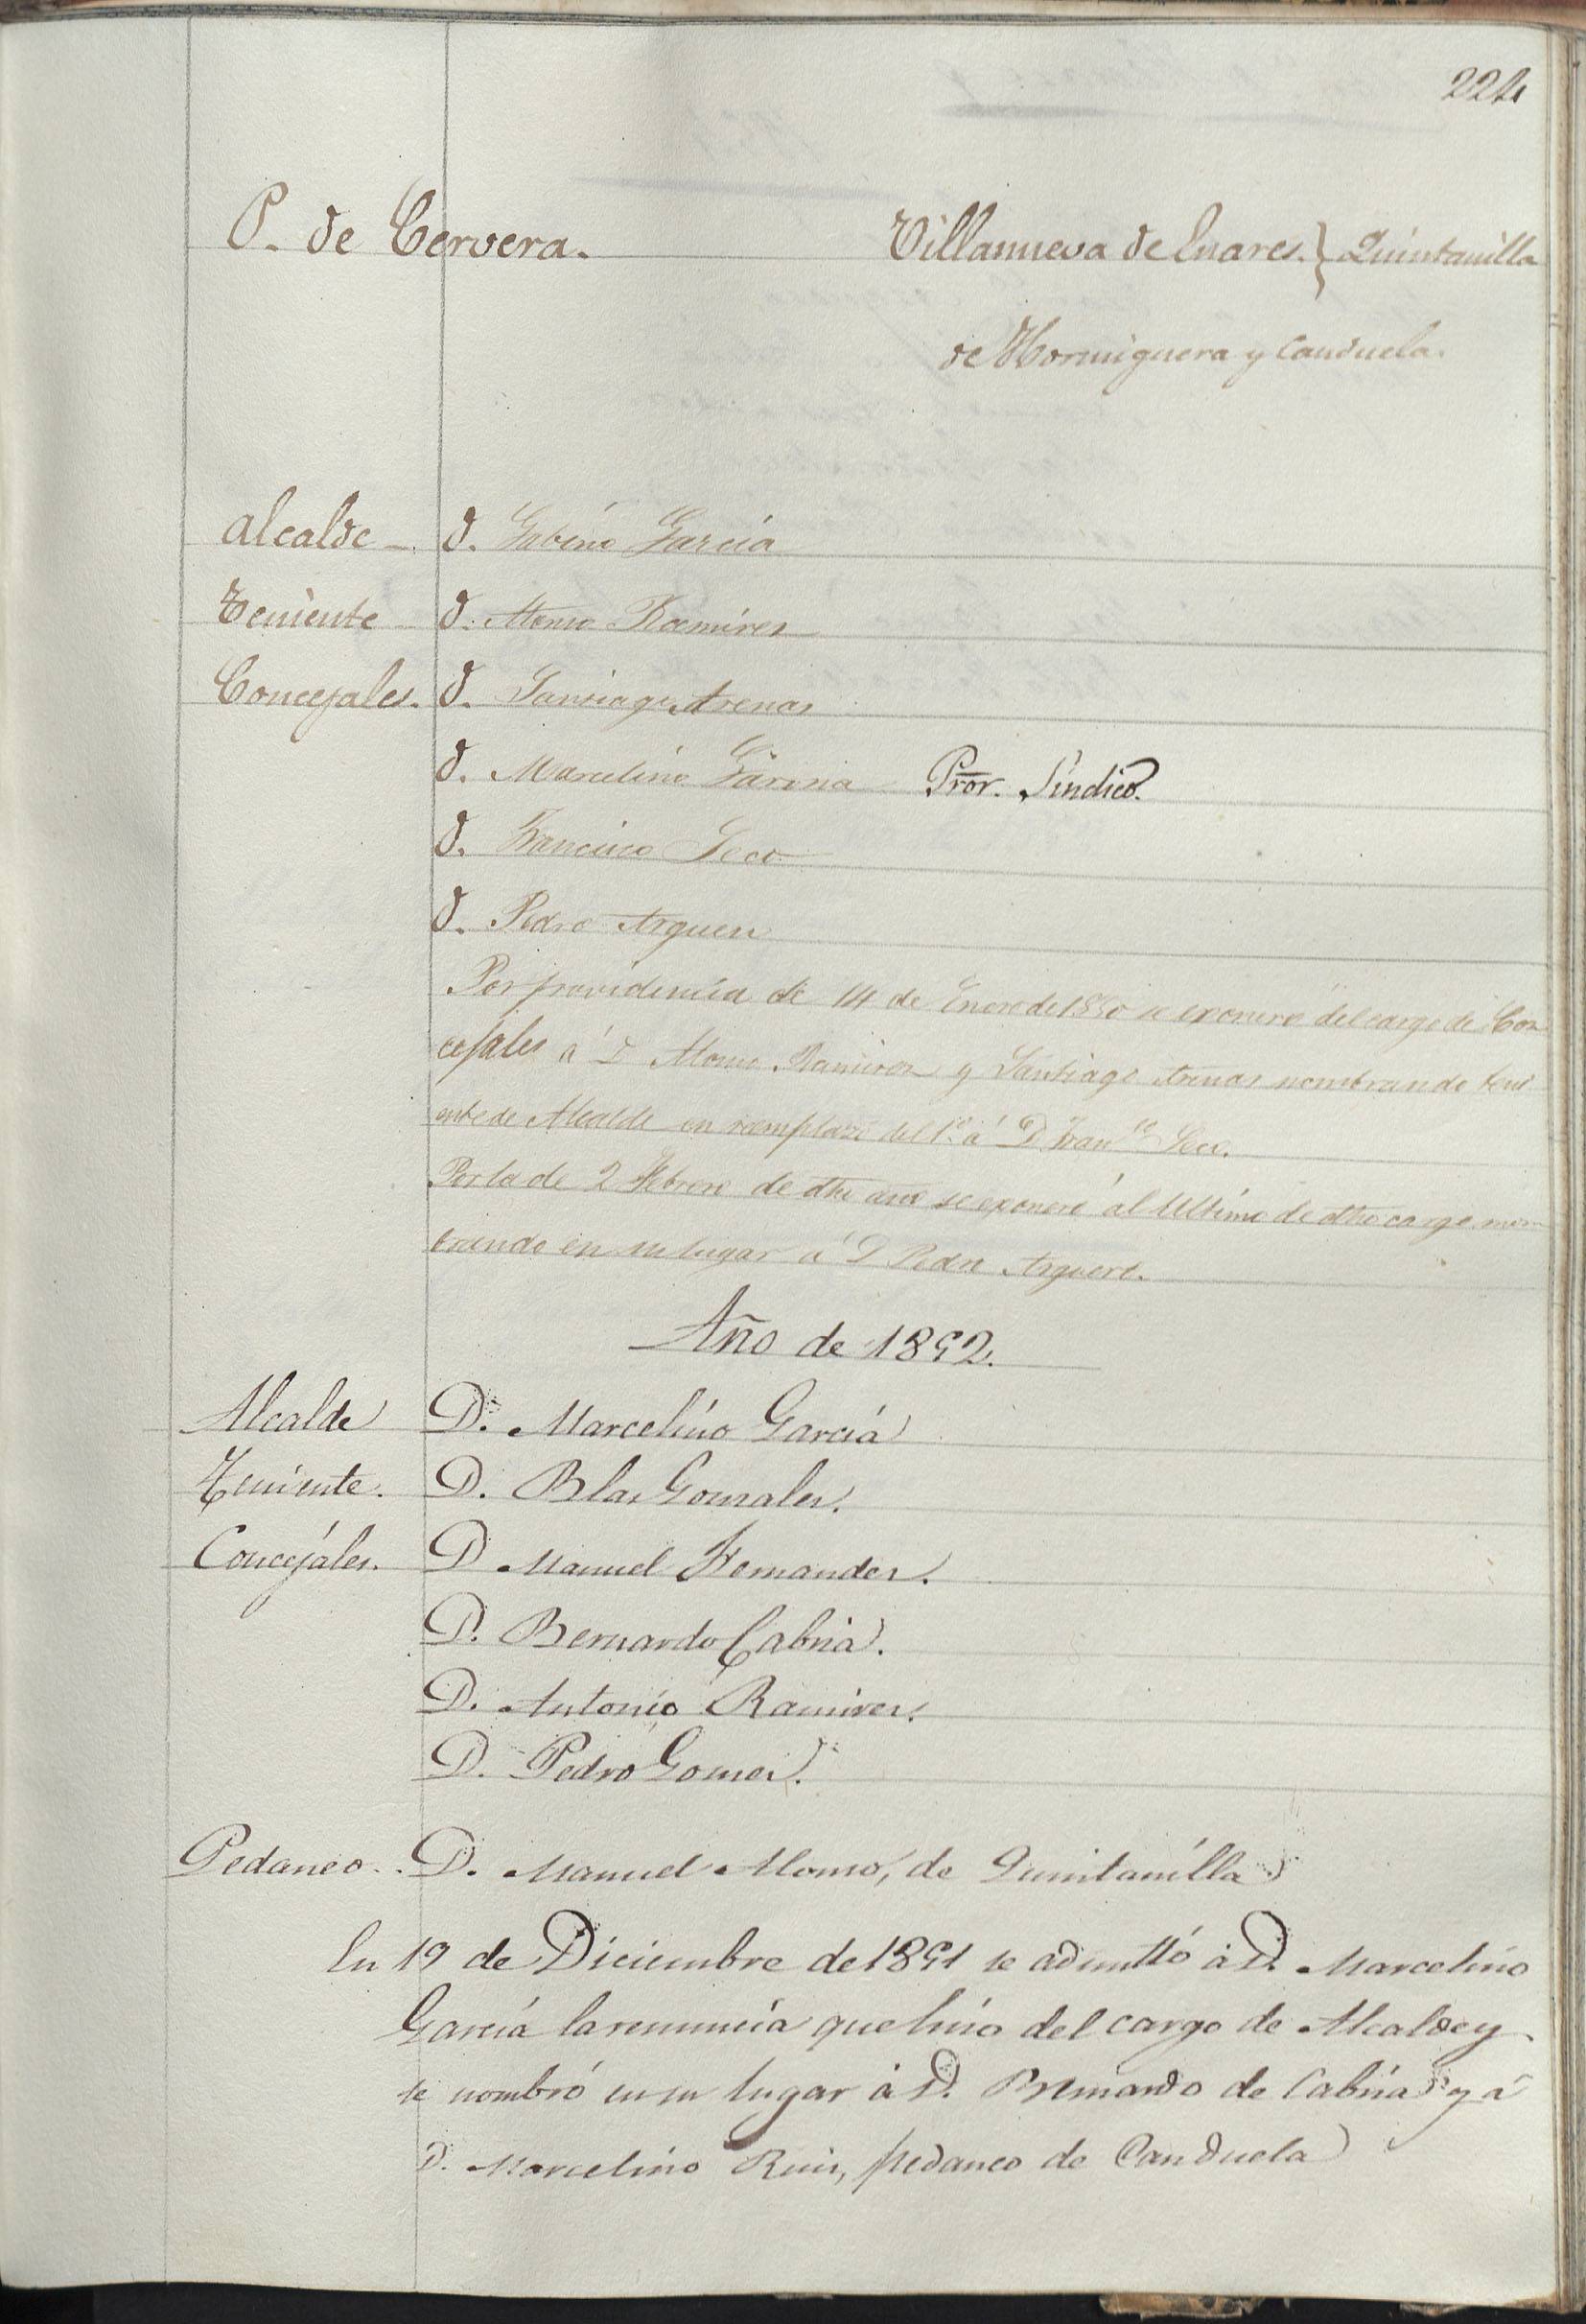 224
P. de Cervera.
Villanueva de Enares. } Quintanilla
de Hormiguera y Canduela.
Alcalde - D. Gabino García
Teniente D. Alonso Ramirez
Concejales. D. Santiago Arenas
D. Marcelino García Pror. Síndico.
D. Francisco Seco
D. Pedro
Por providencia de 14 de Enero de 1850 se exoneró del cargo de Con
cejales á D Alonso Ramirez y Santiago Arenas nombrando teni
ente de Alcalde en reemplazo del 1.º á D. Franco Seco.
Por la de 2 Febrero de dho año se exoneró al Ultimo de dho cargo nom
brando en su lugar á D Pedro
Año de 1852.
Alcalde D. Marcelino García
Teniente. D. Blas Gonzalez.
Concejáles. D Manuel Fernandez.
D. Bernardo Cabria.
D. Antonio Ramirez.
D. Pedro Gomez.
Pedaneo. D. Manuel Alonso, de Quintanilla
En 19 de Diciembre de 1851 se admitió á D. Marcelino
García la renuncia que hizo del cargo de Alcalde y
se nombró en su lugar á D. Bernardo de Cabria y á
D. Marcelino Ruiz, pedaneo de Canduela